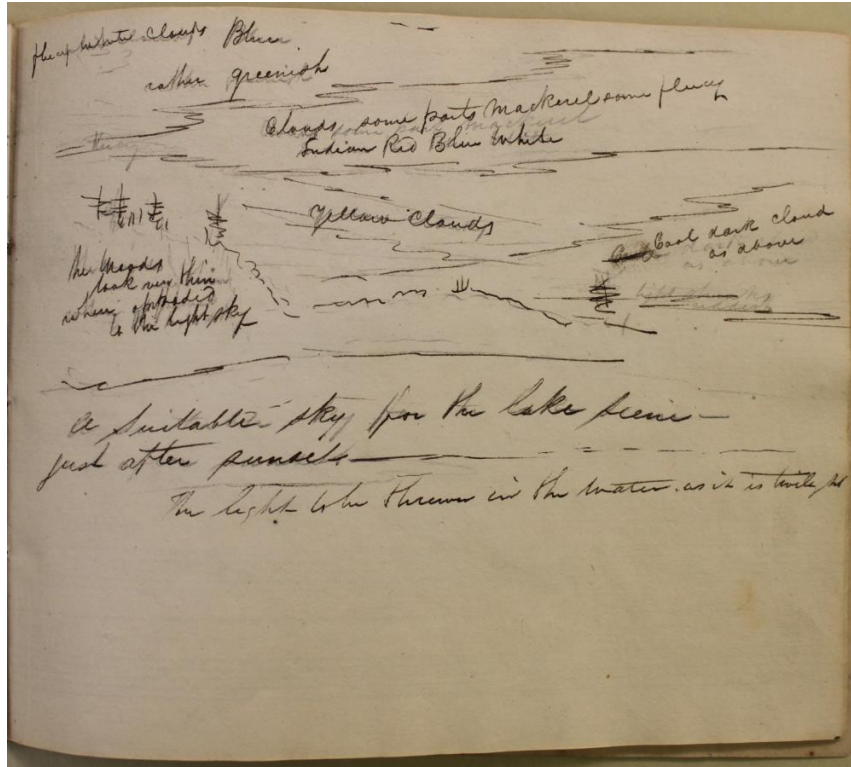 fleecy white clouds Blue
rather greenish
Clouds some parts Mackerel some fleecy
Indian Red Blue White
Yellow Clouds
Cool dark cloud
as above
the Woods
look very thin
when opposed
to the light sky
A suitable sky for the lake scene —
just after sunset —
The light to be thrown in the water as it is twilight